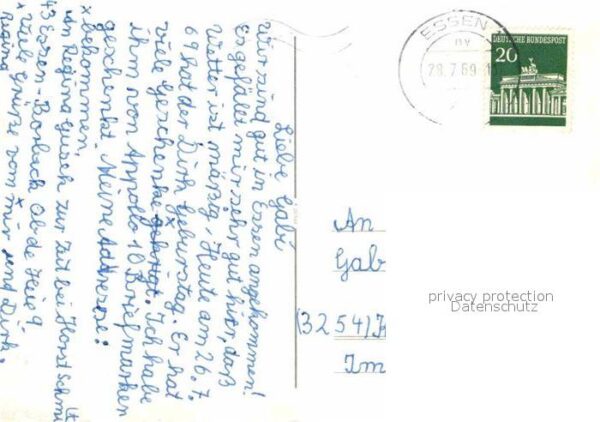 Liebe Gabi
Wir sind gut in Essen angekommen!
Er gefällt mir sehr gut hier, das
Wetter ist mäßig, Heute am 26.7.
69 hat der Dirk Geburtstag. Er hat
viele Geschenke gekriegt. Ich habe
ihm von Appollo 10 Briefmarken
geschenkt. Meine Addresse:
x bekommen,
An Regina zur Zeit bei Horst Schmi
43 Essen-Borbeck
x Viele Grüße vom mir und Dirk.
Regina
ESSEN
28.7.69
DEUTSCHE BUNDESPOST
20
An
Gab
(3254)
Im
privacy protection
Datenschutz